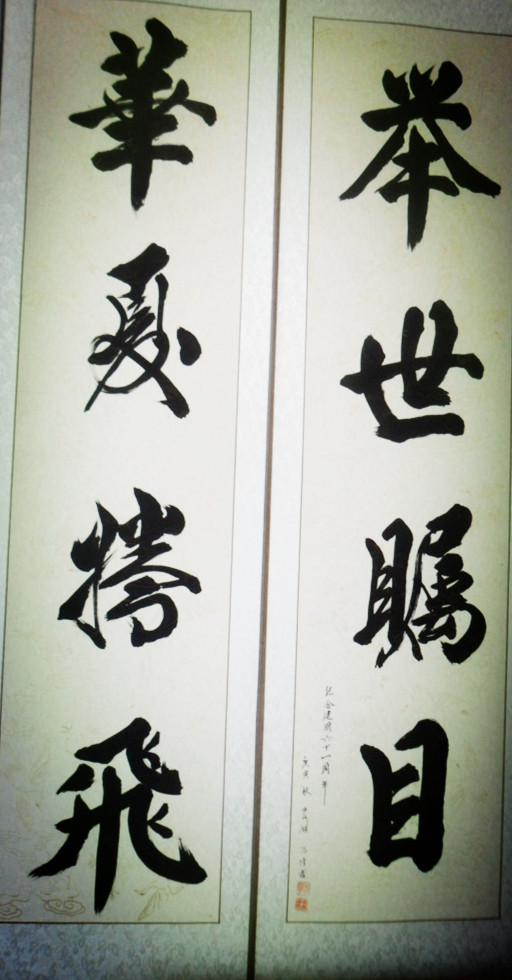 举世瞩目
華夏携飛
纪念建国六十一周年
庚寅秋